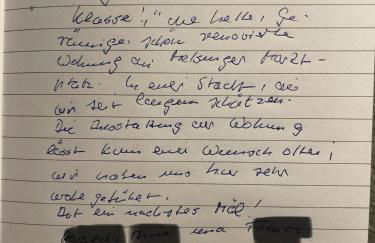 Klasse! Eine helle, ge-
räumige, schön renovierte
Wohnung am Marktplatz-
platz. In einer Stadt, die
wir seit langem schätzen.
Die Ausstattung der Wohnung
lässt kaum einen Wunsch offen,
wir haben uns hier sehr
wohl gefühlt.
Auf ein nächstes Mal!
und